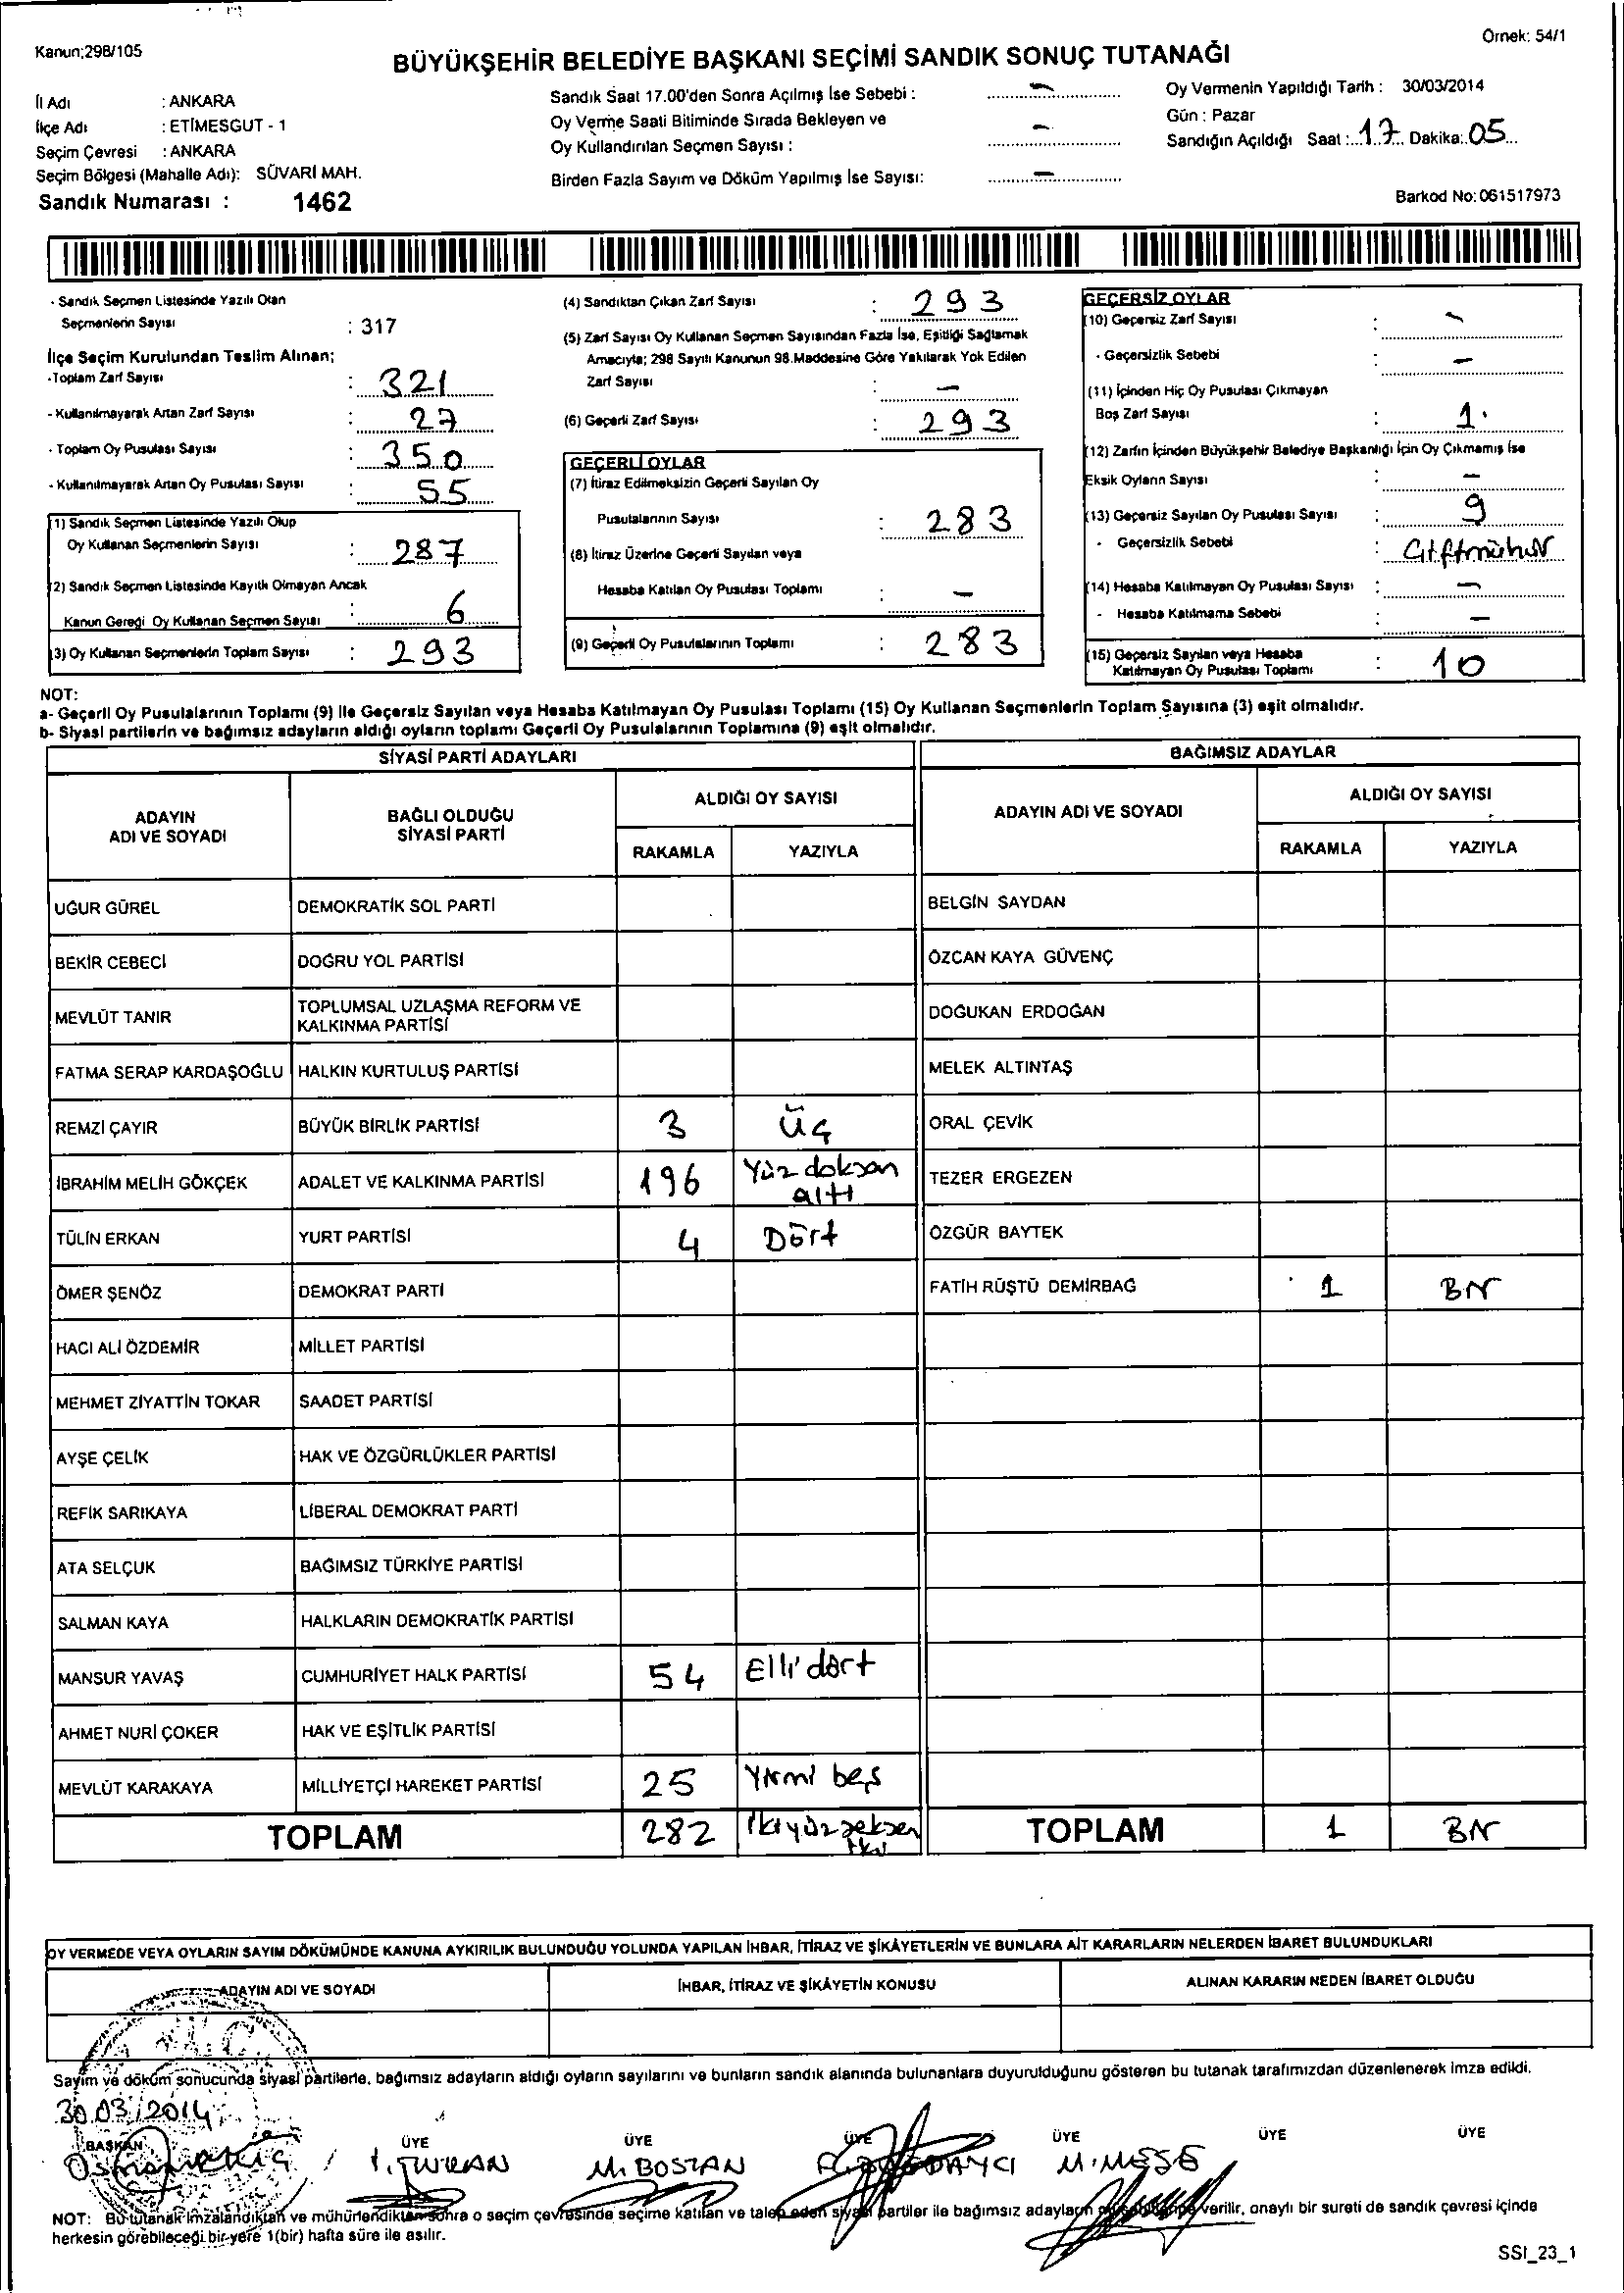 Kanun;298/105
Örnek: 54/1
BÜYÜKŞEHİR BELEDİYE BAŞKANI SEÇİMİ SANDIK SONUÇ TUTANAĞI
İl Adı : ANKARA
İlçe Adı : ETİMESGUT - 1
Seçim Çevresi : ANKARA
Seçim Bölgesi (Mahalle Adı): SÜVARİ MAH.
Sandık Numarası : 1462
Sandık Saat 17.00'den Sonra Açılmış İse Sebebi : –
Oy Verme Saati Bitiminde Sırada Bekleyen ve
Oy Kullandırılan Seçmen Sayısı : –
Birden Fazla Sayım ve Döküm Yapılmış İse Sayısı: –
Oy Vermenin Yapıldığı Tarih : 30/03/2014
Gün : Pazar
Sandığın Açıldığı Saat : 17 Dakika: 05
Barkod No: 061517973
- Sandık Seçmen Listesinde Yazılı Olan
Seçmenlerin Sayısı : 317
İlçe Seçim Kurulundan Teslim Alınan;
-Toplam Zarf Sayısı : 321
- Kullanılmayarak Artan Zarf Sayısı : 27
- Toplam Oy Pusulası Sayısı : 350
- Kullanılmayarak Artan Oy Pusulası Sayısı : 55
(1) Sandık Seçmen Listesinde Yazılı Olup
Oy Kullanan Seçmenlerin Sayısı : 287
(2) Sandık Seçmen Listesinde Kayıtlı Olmayan Ancak
Kanun Gereği Oy Kullanan Seçmen Sayısı : 6
(3) Oy Kullanan Seçmenlerin Toplam Sayısı : 293
(4) Sandıktan Çıkan Zarf Sayısı : 293
(5) Zarf Sayısı Oy Kullanan Seçmen Sayısından Fazla İse, Eşitliği Sağlamak
Amacıyla; 298 Sayılı Kanunun 98.Maddesine Göre Yakılarak Yok Edilen
Zarf Sayısı : –
(6) Geçerli Zarf Sayısı : 293
GEÇERLİ OYLAR
(7) İtiraz Edilmeksizin Geçerli Sayılan Oy
Pusulalarının Sayısı : 283
(8) İtiraz Üzerine Geçerli Sayılan veya
Hesaba Katılan Oy Pusulası Toplamı : –
(9) Geçerli Oy Pusulalarının Toplamı : 283
GEÇERSİZ OYLAR
(10) Geçersiz Zarf Sayısı : –
- Geçersizlik Sebebi : –
(11) İçinden Hiç Oy Pusulası Çıkmayan
Boş Zarf Sayısı : 1
(12) Zarfın İçinden Büyükşehir Belediye Başkanlığı İçin Oy Çıkmamış İse
Eksik Oyların Sayısı : –
(13) Geçersiz Sayılan Oy Pusulası Sayısı : 9
- Geçersizlik Sebebi : Çiftmühür
(14) Hesaba Katılmayan Oy Pusulası Sayısı : –
- Hesaba Katılmama Sebebi : –
(15) Geçersiz Sayılan veya Hesaba
Katılmayan Oy Pusulası Toplamı : 10
NOT:
a- Geçerli Oy Pusulalarının Toplamı (9) ile Geçersiz Sayılan veya Hesaba Katılmayan Oy Pusulası Toplamı (15) Oy Kullanan Seçmenlerin Toplam Sayısına (3) eşit olmalıdır.
b- Siyasi partilerin ve bağımsız adayların aldığı oyların toplamı Geçerli Oy Pusulalarının Toplamına (9) eşit olmalıdır.
SİYASİ PARTİ ADAYLARI
BAĞIMSIZ ADAYLAR
ADAYIN ADI VE SOYADI
BAĞLI OLDUĞU SİYASİ PARTİ
ALDIĞI OY SAYISI
RAKAMLA YAZIYLA
ADAYIN ADI VE SOYADI
ALDIĞI OY SAYISI
RAKAMLA YAZIYLA
UĞUR GÜREL DEMOKRATİK SOL PARTİ BELGİN SAYDAN
BEKİR CEBECİ DOĞRU YOL PARTİSİ ÖZCAN KAYA GÜVENÇ
MEVLÜT TANIR TOPLUMSAL UZLAŞMA REFORM VE KALKINMA PARTİSİ DOĞUKAN ERDOĞAN
FATMA SERAP KARDAŞOĞLU HALKIN KURTULUŞ PARTİSİ MELEK ALTINTAŞ
REMZİ ÇAYIR BÜYÜK BİRLİK PARTİSİ 3 Üç ORAL ÇEVİK
İBRAHİM MELİH GÖKÇEK ADALET VE KALKINMA PARTİSİ 196 Yüz doksan altı TEZER ERGEZEN
TÜLİN ERKAN YURT PARTİSİ 4 Dört ÖZGÜR BAYTEK
ÖMER ŞENÖZ DEMOKRAT PARTİ FATİH RÜŞTÜ DEMİRBAĞ 1 Bir
HACI ALİ ÖZDEMİR MİLLET PARTİSİ
MEHMET ZİYATTİN TOKAR SAADET PARTİSİ
AYŞE ÇELİK HAK VE ÖZGÜRLÜKLER PARTİSİ
REFİK SARIKAYA LİBERAL DEMOKRAT PARTİ
ATA SELÇUK BAĞIMSIZ TÜRKİYE PARTİSİ
SALMAN KAYA HALKLARIN DEMOKRATİK PARTİSİ
MANSUR YAVAŞ CUMHURİYET HALK PARTİSİ 54 Elli dört
AHMET NURİ ÇOKER HAK VE EŞİTLİK PARTİSİ
MEVLÜT KARAKAYA MİLLİYETÇİ HAREKET PARTİSİ 25 Yirmi beş
TOPLAM 282 ikiyüzseksen iki TOPLAM 1 Bir
OY VERMEDE VEYA OYLARIN SAYIM DÖKÜMÜNDE KANUNA AYKIRILIK BULUNDUĞU YOLUNDA YAPILAN İHBAR, İTİRAZ VE ŞİKÂYETLERİN VE BUNLARA AİT KARARLARIN NELERDEN İBARET BULUNDUKLARI
ADAYIN ADI VE SOYADI İHBAR, İTİRAZ VE ŞİKÂYETİN KONUSU ALINAN KARARIN NEDEN İBARET OLDUĞU
Sayım ve döküm sonucunda siyasi partilerle, bağımsız adayların aldığı oyların sayılarını ve bunların sandık alanında bulunanlara duyurulduğunu gösteren bu tutanak tarafımızdan düzenlenerek imza edildi.
30.03.2014
BAŞKAN ÜYE ÜYE ÜYE ÜYE ÜYE ÜYE
M. BOSTAN M. MEŞE
NOT: Bu tutanak imzalandıktan ve mühürlendikten sonra o seçim çevresinde seçime katılan ve talep eden siyasi partiler ile bağımsız adayların verilir, onaylı bir sureti de sandık çevresi içinde
herkesin görebileceği bir yere 1(bir) hafta süre ile asılır.
SSI_23_1